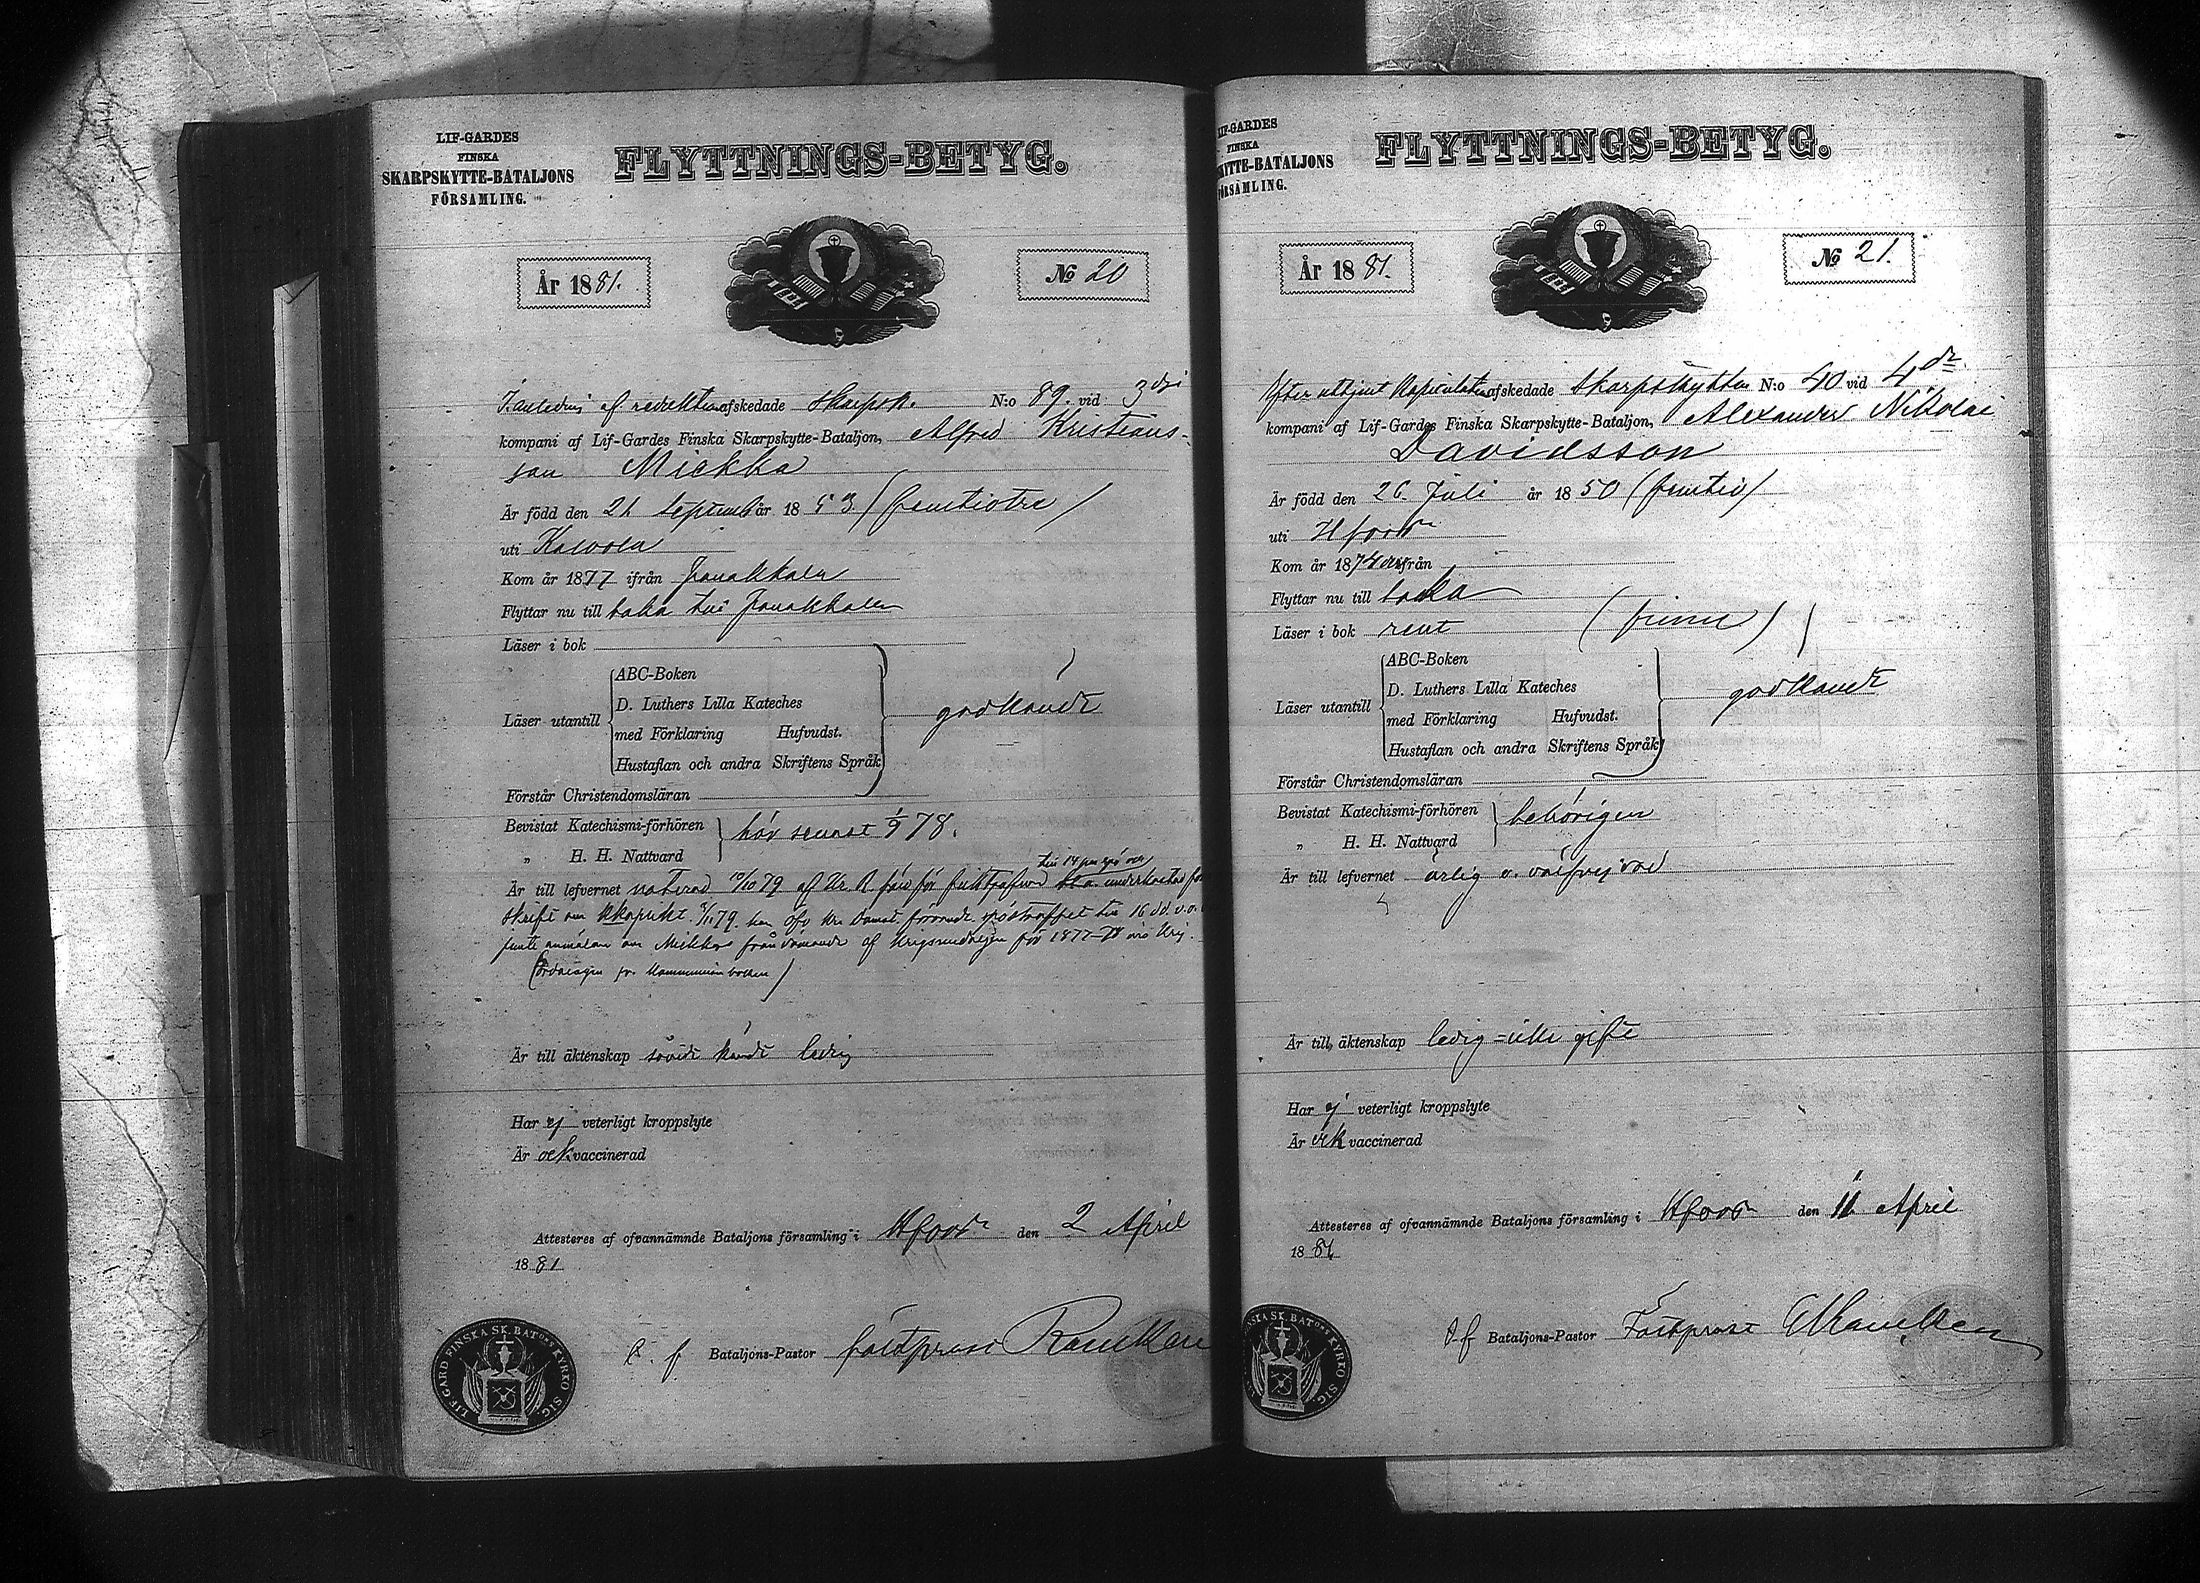 LIF-GARDES
FINSKA
SKARPSKYTTE-BATALJONS
FÖRSAMLING.
FLYTTNINGS-BETYG.
År 1881.
No 20
afskedade Skarpsk. N:o 89. vid 3dje
kompani af Lif-Gardes Finska Skarpskytte-Bataljon, Alfred Kristians-
son Mickka
Är född den 21 September år 1853 (femtiotre)
uti Kalvola
Kom år 1877 ifrån Janakkala
Flyttar nu till baka till Janakkala
Läser i bok
Läser utantill
ABC-Boken
D. Luthers Lilla Kateches
med Förklaring Hufvudst.
Hustaflan och andra Skriftens Språk
godkändt
Förstår Christendomsläran
Bevistat Katechismi-förhören
" H. H. Nattvard
här senast 1/9 78.
Är till lefvernet noterad 10/10 79 af
(kommunionboken)
Är till äktenskap såvidt kändt ledig
Har ej veterligt kroppslyte
Är ock vaccinerad
Attesteres af ofvannämnde Bataljons församling i Hfors den 2 April
1881
t. f. Bataljons-Pastor
LIF GARD FINSKA SK. BATONS KYRKO SIG.
LIF-GARDES
FINSKA
SKYTTE-BATALJONS
FÖRSAMLING.
FLYTTNINGS-BETYG.
År 1881.
No 21.
Efter uttjent Kapitulation afskedade Skarpskytten N:o 40 vid 4de
kompani af Lif-Gardes Finska Skarpskytte-Bataljon, Alexander Nikolai
Davidsson
Är född den 26 Juli år 1850 (femtio)
uti Hfors
Kom år 1874 ifrån
Flyttar nu till baka
Läser i bok rent (finne)
Läser utantill
ABC-Boken
D. Luthers Lilla Kateches
med Förklaring Hufvudst.
Hustaflan och andra Skriftens Språk
godkändt
Förstår Christendomsläran
Bevistat Katechismi-förhören
" H. H. Nattvard
behörigen
Är till lefvernet ärlig o. välfrejdad
Är till äktenskap ledig = icke gift
Har ej veterligt kroppslyte
Är ock vaccinerad
Attesteres af ofvannämnde Bataljons församling i Hfors den 11 April
1881
t. f. Bataljons-Pastor
FINSKA SK. BATONS KYRKO SIG.